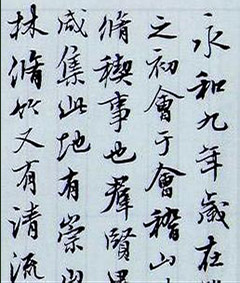 永和九年歲在
之初會于會稽山
脩稧事也羣賢
咸集此地有崇山
林脩竹又有清流